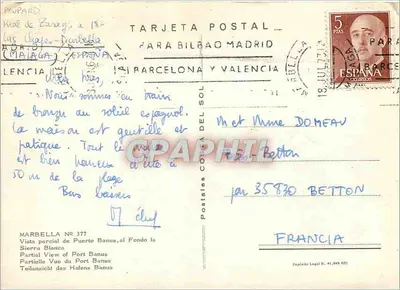 TARJETA POSTAL
PARA BILBAO MADRID
BARCELONA Y VALENCIA
MARBELLA
MALAGA
5
PTAS
ESPAÑA
PARA
MADRID
VALENCIA
(MALAGA) ESPAÑA
Nous sommes en train
de bronzer au soleil espagnol.
La maison est gentille et
pratique. Tout le monde
est bien heureux d'être à
50 m de la plage
Bons baisers
CPAPHIL
Postales COSTA DEL SOL
M et Mme DOMEAU
Betton
par 35830 BETTON
FRANCIA
MARBELLA Nº 377
Vista parcial de Puerto Banus, al Fondo la
Sierra Blanca
Partial View of Port Banus
Partielle Vue du Port Banus
Teilansicht des Hafens Banus